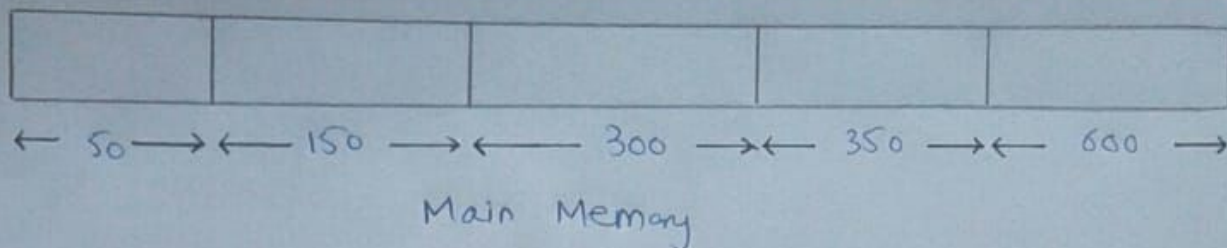 ← 50 → ← 150 → ← 300 → ← 350 → ← 600 →
Main Memory